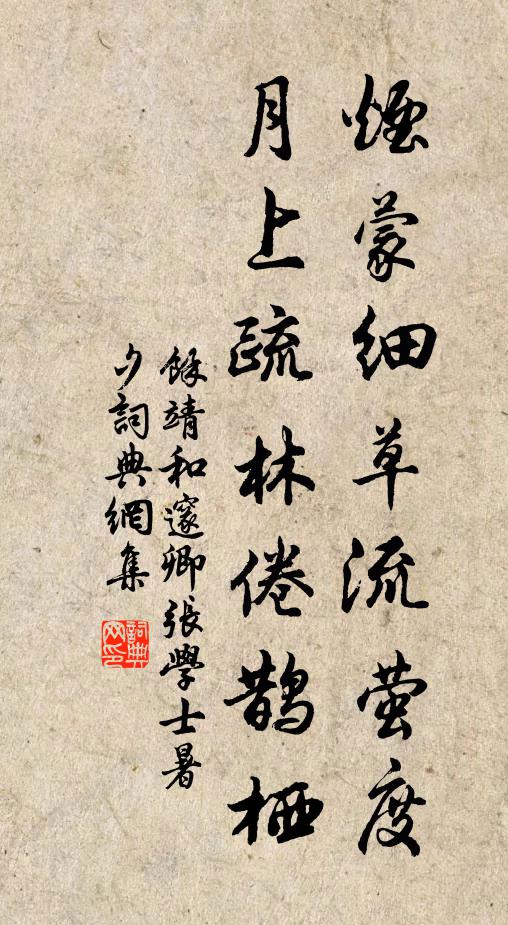 煙蒙細草流萤度
月上疏林倦鹊栖
餘靖和邃卿張學士暑
夕詞典網集
詞典
网印